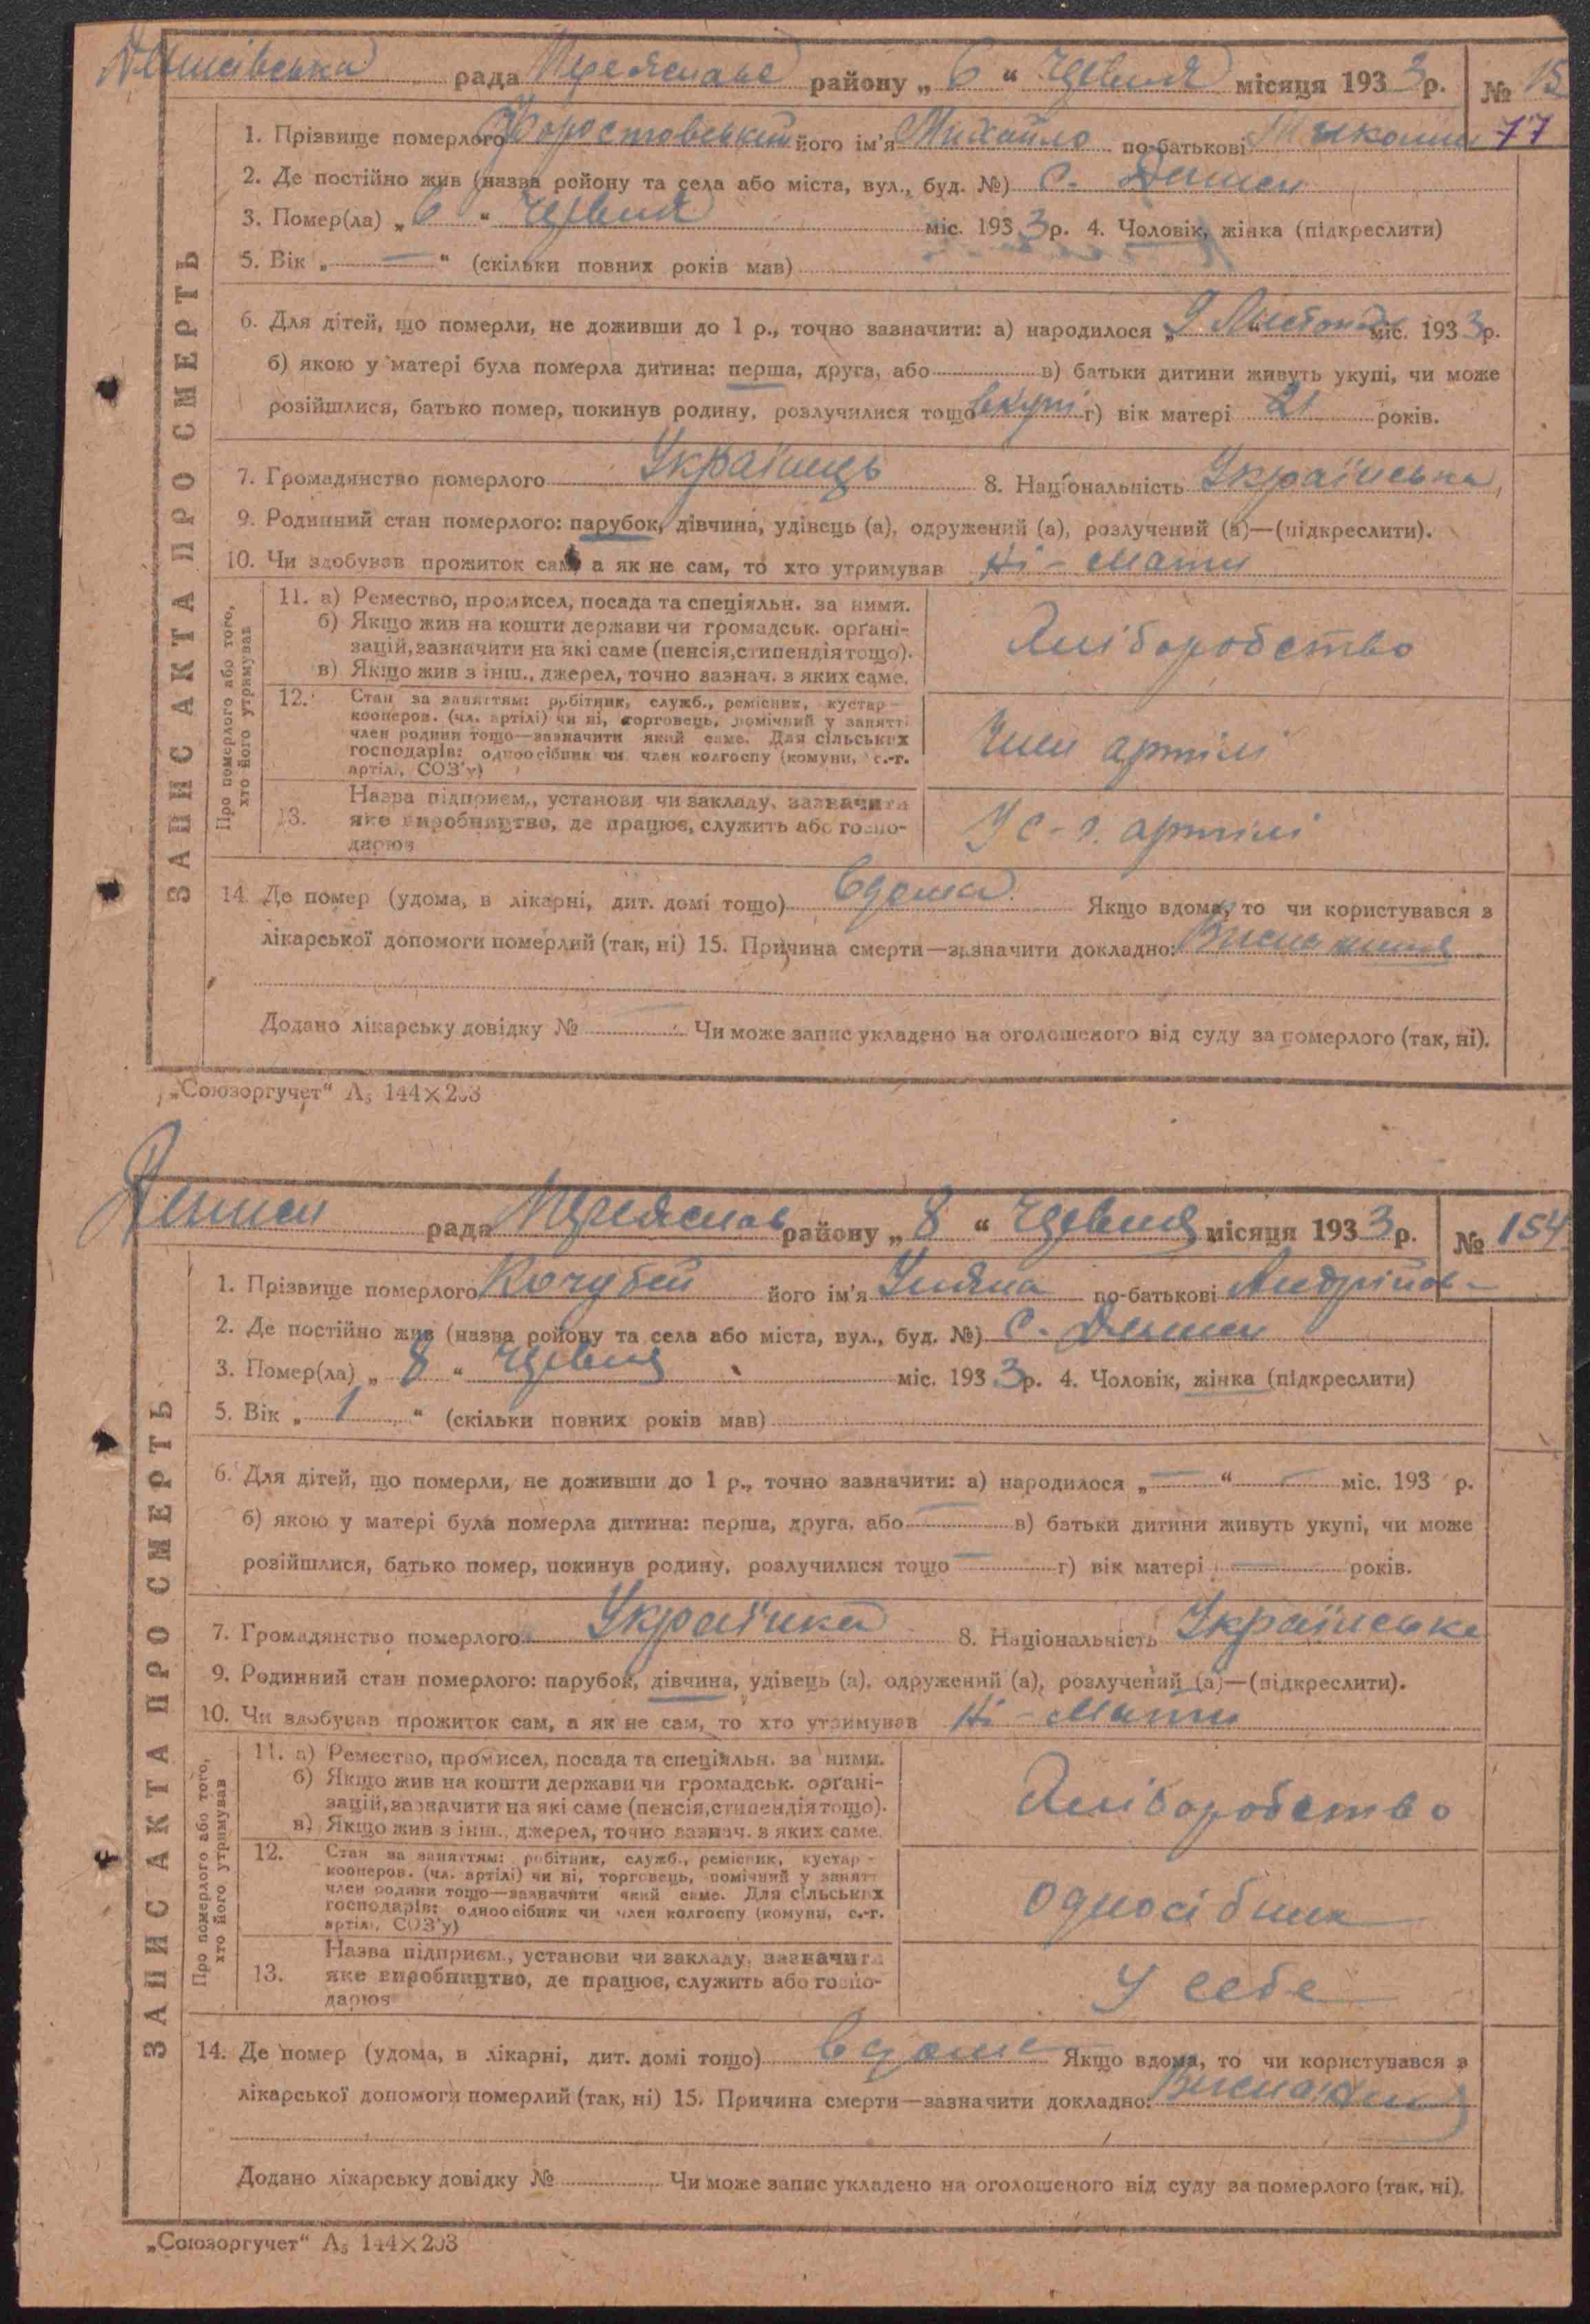 Денисівська рада Переяслав району „ 6 “ Червня місяця 1933 р. № 15
77
1. Прізвище померлого Хоростовський його ім'я Михайло по-батькові
2. Де постійно жив (назва ройону та села або міста, вул., буд. №) С. Дениси
3. Помер(ла) „ 6 “ Червня міс. 1933 р. 4. Чоловік, жінка (підкреслити)
5. Вік „ — “ (скільки повних років мав)
6. Для дітей, що померли, не доживши до 1 р., точно зазначити: а) народилося „ 9 Листопад міс. 1933 р.
б) якою у матері була померла дитина: перша, друга, або в) батьки дитини живуть укупі, чи може
розійшлися, батько помер, покинув родину, розлучилися тощо вкупі г) вік матері 21 років.
7. Громадянство померлого Українець 8. Національність Українська
9. Родинний стан померлого: парубок, дівчина, удівець (а), одружений (а), розлучений (а)—(підкреслити).
10. Чи здобував прожиток сам, а як не сам, то хто утримував Ні - Мати
ЗАПИС АКТА ПРО СМЕРТЬ
Про померлого або того, хто його утримував
11. а) Ремество, промисел, посада та спеціяльн. за ними.
б) Якщо жив на кошти держави чи громадськ. орґані-
зацій, зазначити на які саме (пенсія, стипендія тощо).
в) Якщо жив з інш., джерел, точно зазнач. з яких саме.
Хліборобство
12. Стан за заняттям: робітник, служб., ремісник, кустар -
кооперов. (чл. артілі) чи ні, торговець, помічний у занятті
член родини тощо—зазначити який саме. Для сільських
господарів: одноосібник чи член колгоспу (комуни, с.-г.
артілі, СОЗ'у)
Член артілі
13. Назва підприєм., установи чи закладу, зазначити
яке виробництво, де працює, служить або госпо-
дарює
У с-г. артілі
14. Де помер (удома, в лікарні, дит. домі тощо) вдома Якщо вдома, то чи користувався з
лікарської допомоги померлий (так, ні) 15. Причина смерти—зазначити докладно:
Додано лікарську довідку № Чи може запис укладено на оголошеного від суду за померлого (так, ні).
„Союзоргучет“ А₅ 144×203
Дениси рада Переяслав району „ 8 “ Червня місяця 1933 р. № 154
1. Прізвище померлого Кочубей його ім'я Уляна по-батькові Андріїв-
2. Де постійно жив (назва ройону та села або міста, вул., буд. №) С. Дениси
3. Помер(ла) „ 8 “ Червня міс. 1933 р. 4. Чоловік, жінка (підкреслити)
5. Вік „ 1 “ (скільки повних років мав)
6. Для дітей, що померли, не доживши до 1 р., точно зазначити: а) народилося „ — “ — міс. 193 р.
б) якою у матері була померла дитина: перша, друга, або — в) батьки дитини живуть укупі, чи може
розійшлися, батько помер, покинув родину, розлучилися тощо — г) вік матері — років.
7. Громадянство померлого Українка 8. Національність Українська
9. Родинний стан померлого: парубок, дівчина, удівець (а), одружений (а), розлучений (а)—(підкреслити).
10. Чи здобував прожиток сам, а як не сам, то хто утримував Ні - Мати
ЗАПИС АКТА ПРО СМЕРТЬ
Про померлого або того, хто його утримував
11. а) Ремество, промисел, посада та спеціяльн. за ними.
б) Якщо жив на кошти держави чи громадськ. орґані-
зацій, зазначити на які саме (пенсія, стипендія тощо).
в) Якщо жив з інш., джерел, точно зазнач. з яких саме.
Хліборобство
12. Стан за заняттям: робітник, служб., ремісник, кустар -
кооперов. (чл. артілі) чи ні, торговець, помічний у занятті
член родини тощо—зазначити який саме. Для сільських
господарів: одноосібник чи член колгоспу (комуни, с.-г.
артілі, СОЗ'у)
Односібник
13. Назва підприєм., установи чи закладу, зазначити
яке виробництво, де працює, служить або госпо-
дарює
У себе
14. Де помер (удома, в лікарні, дит. домі тощо) вдома Якщо вдома, то чи користувався з
лікарської допомоги померлий (так, ні) 15. Причина смерти—зазначити докладно:
Додано лікарську довідку № Чи може запис укладено на оголошеного від суду за померлого (так, ні).
„Союзоргучет“ А₅ 144×203